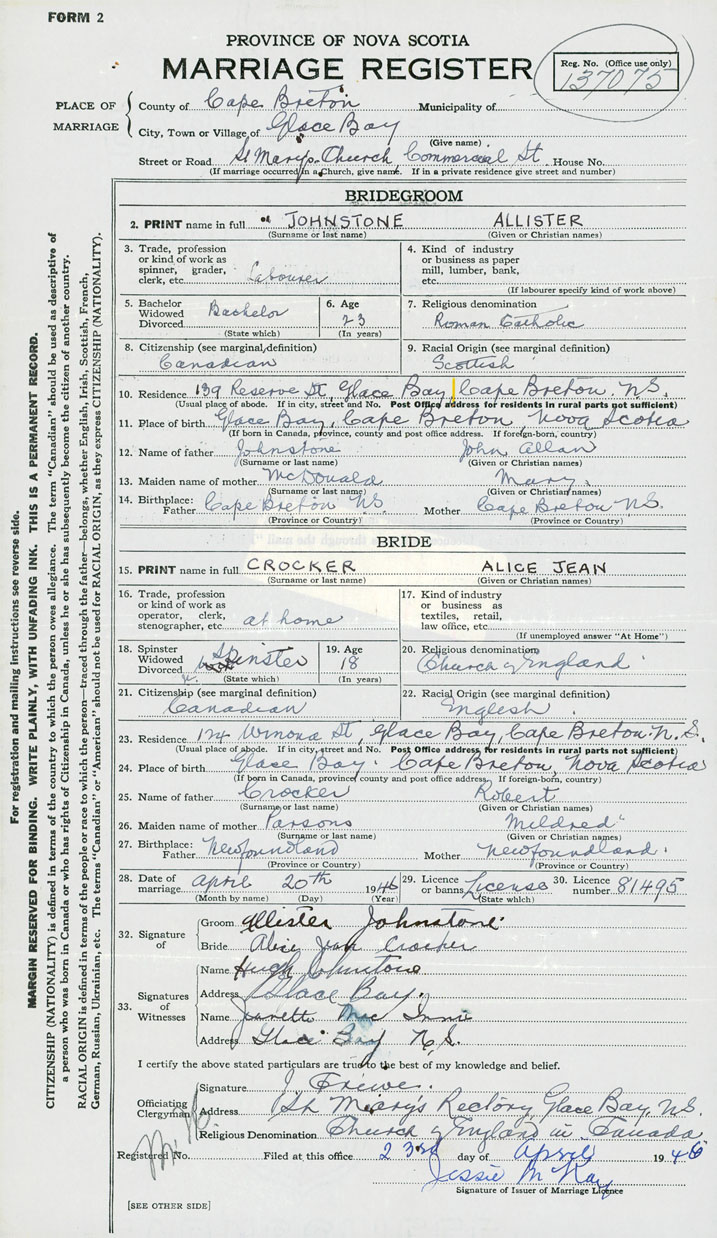 FORM 2
PROVINCE OF NOVA SCOTIA
MARRIAGE REGISTER
Reg. No. (Office use only)
137075
PLACE OF MARRIAGE
County of Cape Breton Municipality of
City, Town or Village of Glace Bay
(Give name)
Street or Road St Mary's Church, Commercial St. House No.
(If marriage occurred in a Church, give name. If in a private residence give street and number)
BRIDEGROOM
2. PRINT name in full JOHNSTONE ALLISTER
(Surname or last name) (Given or Christian names)
3. Trade, profession or kind of work as spinner, grader, clerk, etc. Labourer
4. Kind of industry or business as paper mill, lumber, bank, etc.
(If labourer specify kind of work above)
5. Bachelor Widowed Divorced Bachelor
(State which)
6. Age 23
(In years)
7. Religious denomination
Roman Catholic
8. Citizenship (see marginal definition)
Canadian
9. Racial Origin (see marginal definition)
Scottish
10. Residence 139 Reserve St, Glace Bay, Cape Breton N.S.
(Usual place of abode. If in city, street and No. Post Office address for residents in rural parts not sufficient)
11. Place of birth Glace Bay, Cape Breton, Nova Scotia
(If born in Canada, province, county and post office address. If foreign-born, country)
12. Name of father Johnstone John Allan
(Surname or last name) (Given or Christian names)
13. Maiden name of mother McDonald Mary
(Surname or last name) (Given or Christian names)
14. Birthplace: Father Cape Breton N.S. Mother Cape Breton N.S.
(Province or Country) (Province or Country)
BRIDE
15. PRINT name in full CROCKER ALICE JEAN
(Surname or last name) (Given or Christian names)
16. Trade, profession or kind of work as operator, clerk, stenographer, etc. at home
17. Kind of industry or business as textiles, retail, law office, etc.
(If unemployed answer "At Home")
18. Spinster Widowed Divorced Spinster
(State which)
19. Age 18
(In years)
20. Religious denomination
Church of England
21. Citizenship (see marginal definition)
Canadian
22. Racial Origin (see marginal definition)
English
23. Residence 124 Winona St, Glace Bay, Cape Breton N.S.
(Usual place of abode. If in city, street and No. Post Office address for residents in rural parts not sufficient)
24. Place of birth Glace Bay. Cape Breton, Nova Scotia
(If born in Canada, province, county and post office address. If foreign-born, country)
25. Name of father Crocker Robert
(Surname or last name) (Given or Christian names)
26. Maiden name of mother Parsons Mildred
(Surname or last name) (Given or Christian names)
27. Birthplace: Father Newfoundland Mother Newfoundland
(Province or Country) (Province or Country)
28. Date of marriage April 20th 1946
(Month by name) (Day) (Year)
29. Licence or banns License
(State which)
30. Licence number 81495
32. Signature of
Groom Allister Johnstone
Bride Alice Jean Crocker
33. Signatures of Witnesses
Name Hugh Johnstone
Address Glace Bay.
Name Jeanette Mac Innis
Address Glace Bay N.S.
I certify the above stated particulars are true to the best of my knowledge and belief.
Officiating Clergyman
Signature J. Frewe.
Address St Mary's Rectory, Glace Bay, N.S.
Religious Denomination Church of England in Canada
Registered No. Filed at this office 23rd day of April 1946
Jessie McKay
Signature of Issuer of Marriage Licence
[SEE OTHER SIDE]
For registration and mailing instructions see reverse side.
MARGIN RESERVED FOR BINDING. WRITE PLAINLY, WITH UNFADING INK. THIS IS A PERMANENT RECORD.
CITIZENSHIP (NATIONALITY) is defined in terms of the country to which the person owes allegiance. The term "Canadian" should be used as descriptive of
a person who was born in Canada or who has rights of Citizenship in Canada, unless he or she has subsequently become the citizen of another country.
RACIAL ORIGIN is defined in terms of the people or race to which the person—traced through the father—belongs, whether English, Irish, Scottish, French,
German, Russian, Ukrainian, etc. The terms "Canadian" or "American" should not be used for RACIAL ORIGIN, as they express CITIZENSHIP (NATIONALITY).